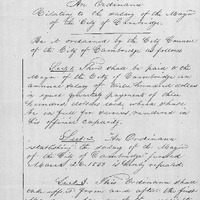 An Ordinance
Relating to the salary of the Mayor
of the City of Cambridge
Be it ordained by the City Council
of the City of Cambridge as follows
Sect. 1. There shall be paid to the
Mayor of the City of Cambridge an
annual salary of hundred dollars
in equal quarterly payments of three
hundred dollars each which shall be
in full for services rendered in
his official capacity.
Sect. 2. An Ordinance
establishing the salary of the Mayor
of the City of Cambridge passed
March 26, is hereby repealed.
Sect. 3. This Ordinance shall
take effect from and after the first